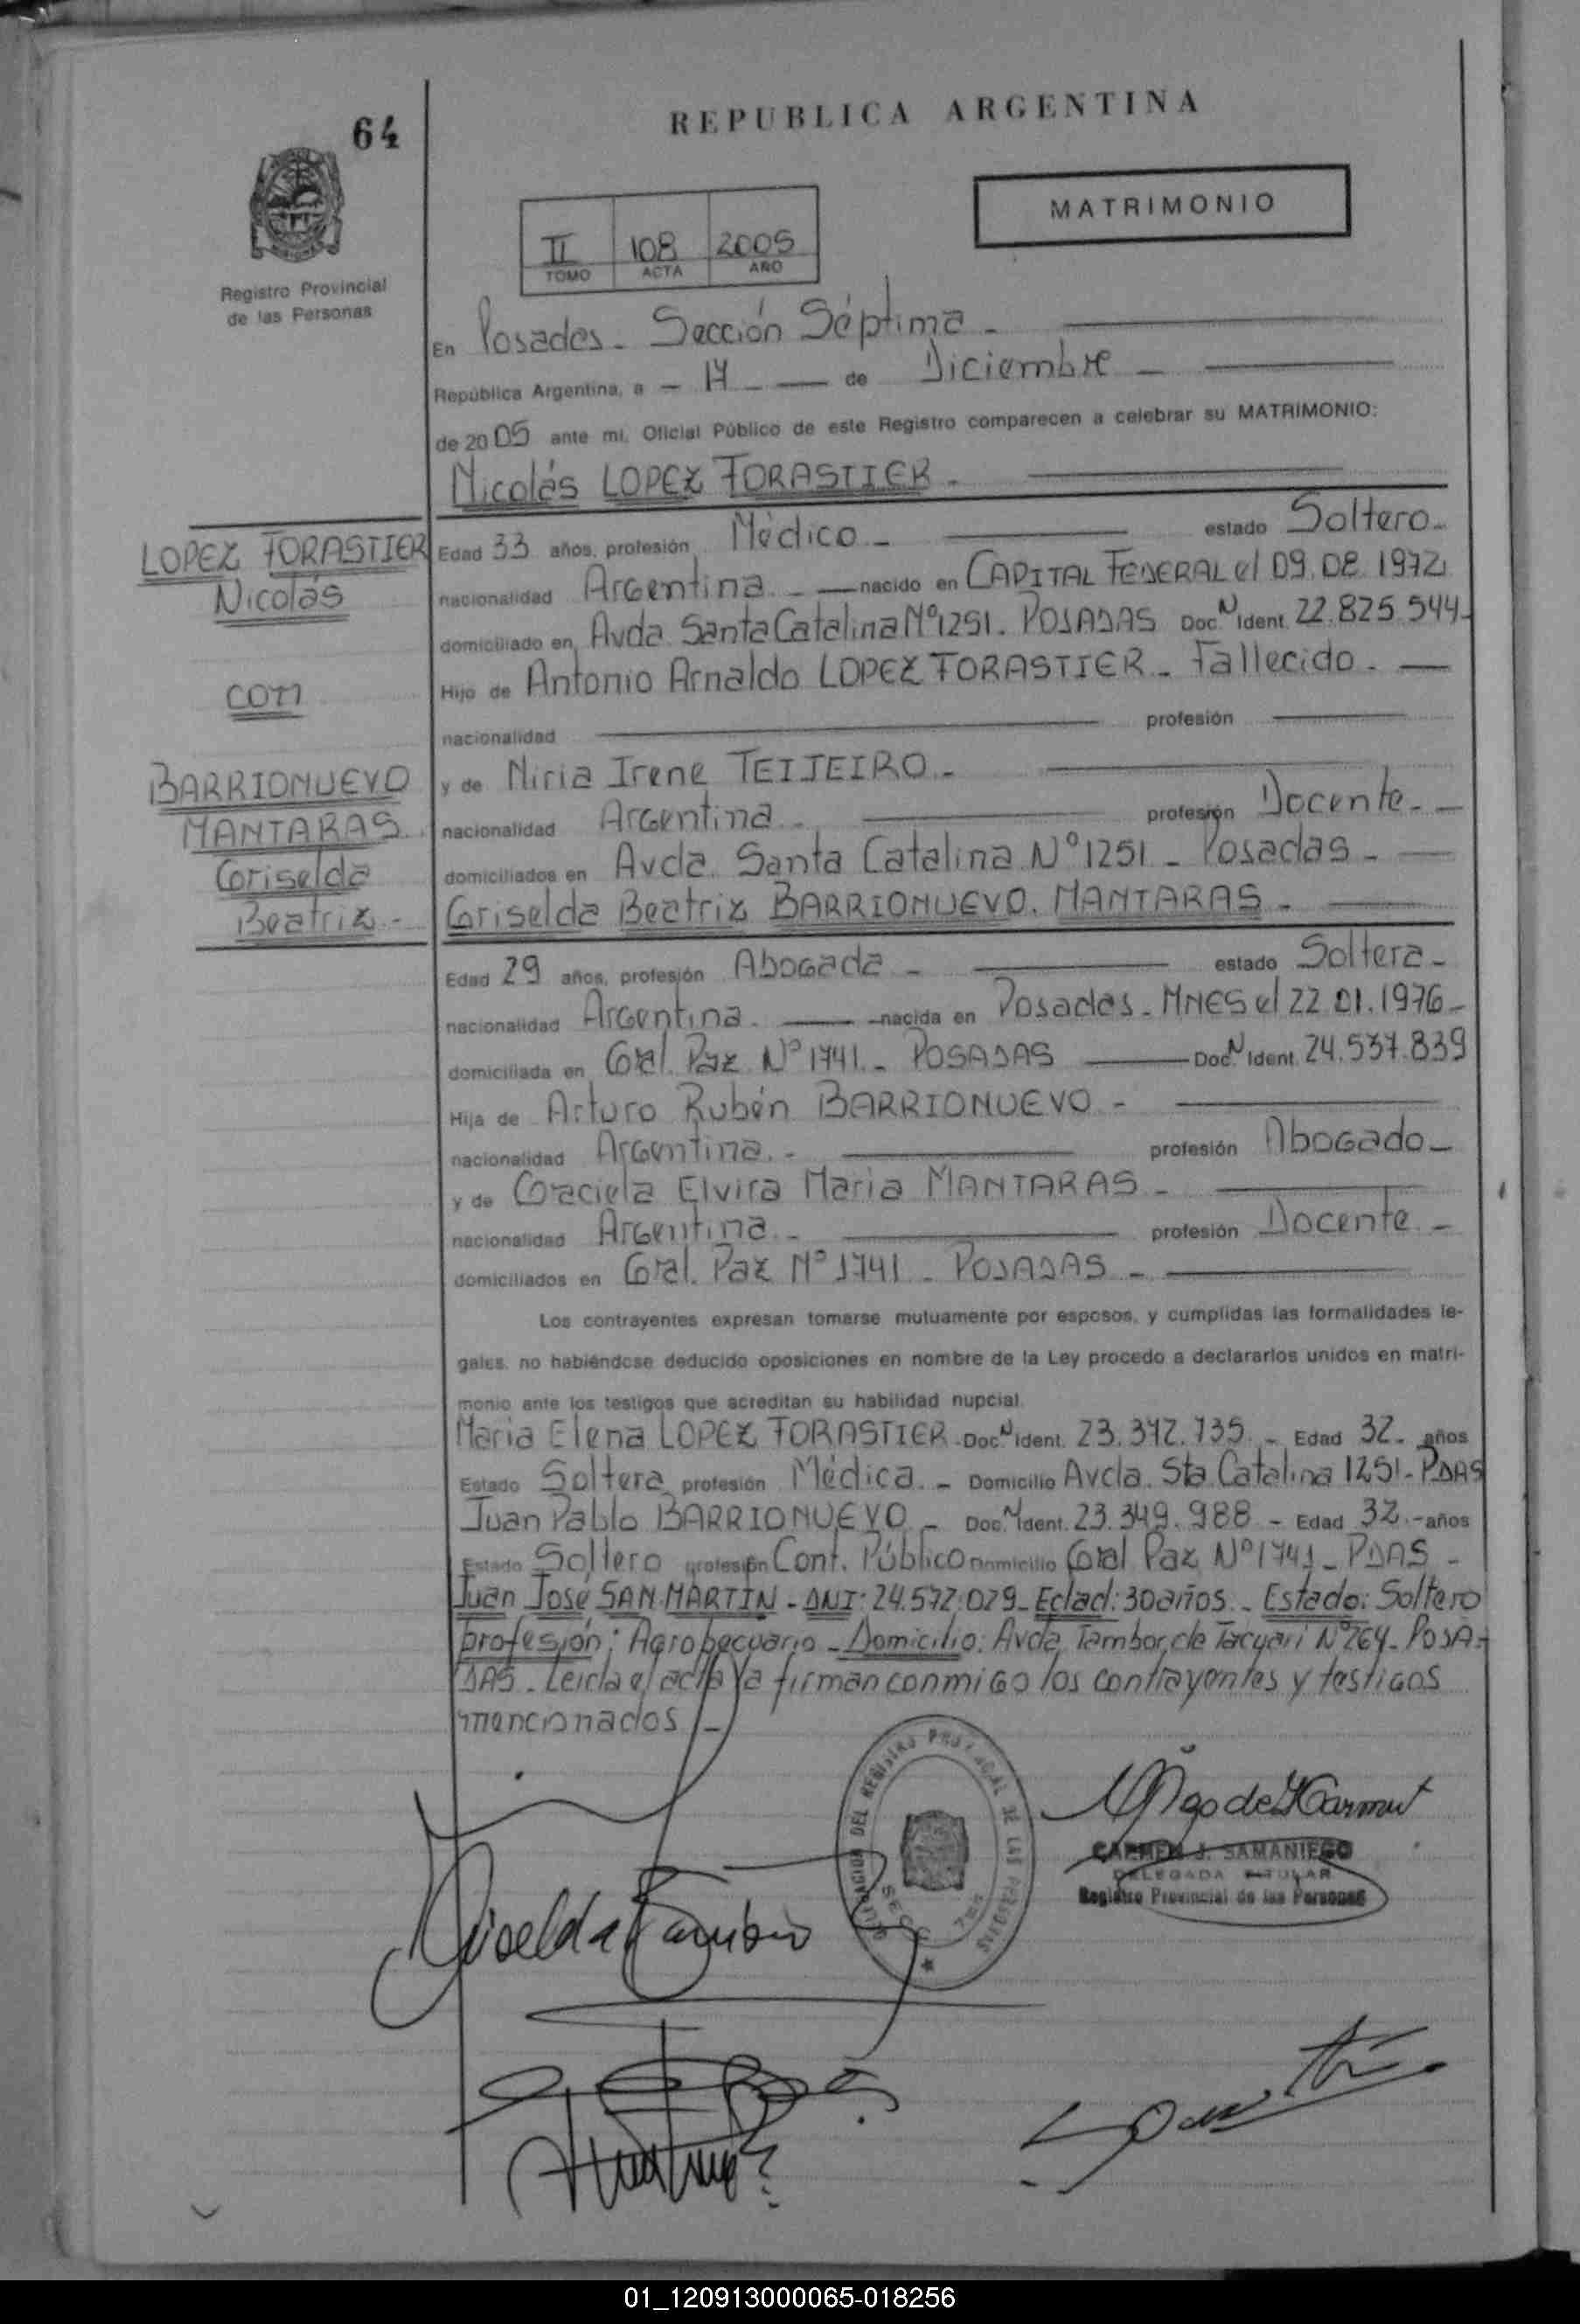 64
REPUBLICA ARGENTINA
MATRIMONIO
II 108 2005
TOMO ACTA AÑO
Registro Provincial
de las Personas
En Posadas - Sección Séptima -
República Argentina, a - 14 - de Diciembre -
de 2005 ante mi, Oficial Público de este Registro comparecen a celebrar su MATRIMONIO:
Nicolás LOPEZ FORASTIER -
LOPEZ FORASTIER
Nicolás
con
BARRIONUEVO
MANTARAS
Griselda
Beatriz -
Edad 33 años, profesión Médico - estado Soltero -
nacionalidad Argentina - nacido en CAPITAL FEDERAL el 09.08.1972
domiciliado en Avda. Santa Catalina Nº 1251. POSADAS Doc. N Ident. 22.825.544-
Hijo de Antonio Arnaldo LOPEZ FORASTIER - Fallecido -
nacionalidad profesión
y de Niria Irene TEIJEIRO -
nacionalidad Argentina - profesión Docente -
domiciliados en Avda. Santa Catalina Nº 1251 - Posadas -
Griselda Beatriz BARRIONUEVO. MANTARAS -
Edad 29 años, profesión Abogada - estado Soltera -
nacionalidad Argentina - nacida en Posadas - MNES el 22.01.1976 -
domiciliada en Gral. Paz Nº 1741 - POSADAS Doc. N Ident. 24.537.839
Hija de Arturo Rubén BARRIONUEVO -
nacionalidad Argentina - profesión Abogado -
y de Graciela Elvira Maria MANTARAS -
nacionalidad Argentina - profesión Docente -
domiciliados en Gral. Paz Nº 1741 - POSADAS -
Los contrayentes expresan tomarse mutuamente por esposos, y cumplidas las formalidades le-
gales, no habiéndose deducido oposiciones en nombre de la Ley procedo a declararlos unidos en matri-
monio ante los testigos que acreditan su habilidad nupcial.
Maria Elena LOPEZ FORASTIER - Doc. N Ident. 23.372.735 - Edad 32 - años
Estado Soltera profesión Médica - Domicilio Avda. Sta. Catalina 1251 - PDAS
Juan Pablo BARRIONUEVO - Doc. N Ident. 23.349.988 - Edad 32 - años
Estado Soltero profesión Cont. Público Domicilio Gral Paz Nº 1741 - PDAS -
Juan José SAN MARTIN - DNI: 24.572.029 - Edad: 30 años - Estado: Soltero
profesión: Agropecuario - Domicilio: Avda. Tambor de Tacuari Nº 264 - POSA-
DAS - Leida el acta la firman conmigo los contrayentes y testigos
mencionados -
DELEGACION DEL REGISTRO PROVINCIAL DE LAS PERSONAS
CARMEN J. SAMANIEGO
DELEGADA TITULAR
Registro Provincial de las Personas
01_120913000065-018256